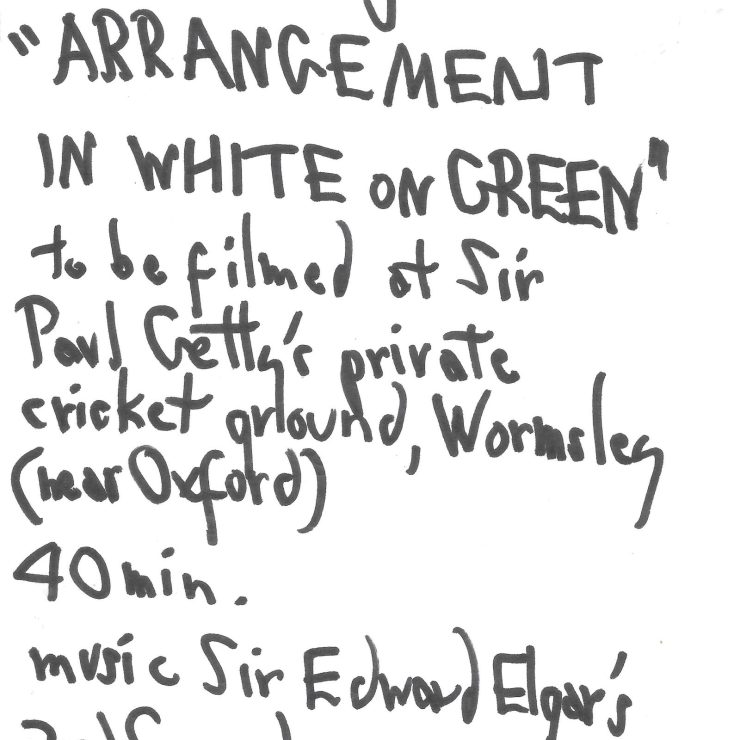 "ARRANGEMENT
IN WHITE ON GREEN"
to be filmed at Sir
Paul Getty's private
cricket ground, Wormsley
(near Oxford)
40 min.
music Sir Edward Elgar's